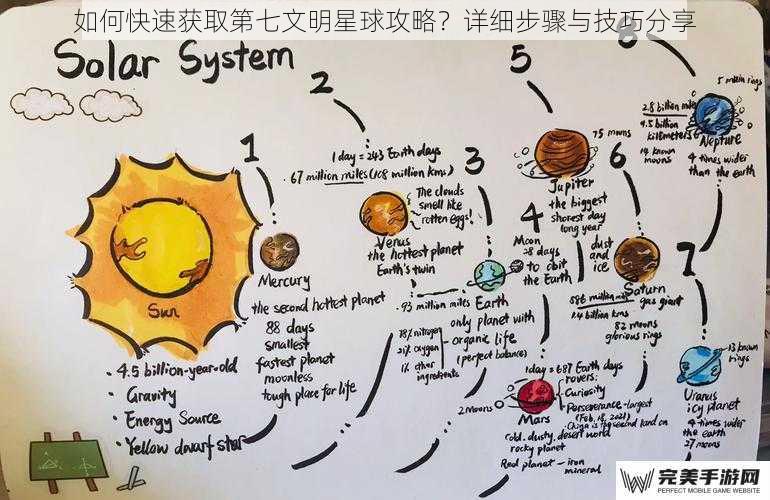 如何快速获取第七文明星球攻略？详细步骤与技巧分享
Solar System
1
2
3
4
5
6
7
8
Sun
4.5 billion-year-old
Gravity
Energy Source
Yellow dwarf star
Mercury
the second hottest planet
88 days
smallest
fastest planet
moonless
tough place for life
1 day = 243 Earth days
67 million miles (108 million kms)
The clouds
smell like
rotten eggs!
Venus
the hottest planet
Earth's twin
93 million miles
Earth
only planet with
organic life
(perfect balance)
78% nitrogen
21% oxygen
1% other
ingredients
Moon
28 days
to obit
the Earth
1 day = 687 Earth days
rovers:
Curiosity
Perseverance - largest
(Feb. 18, 2021)
2 Moons
Mars
cold, dusty, desert world
rocky planet
Red planet - iron
mineral
75 moons
Jupiter
the biggest
shorest day
long year
dust
and
ice
Saturn
gas giant
886 million
1.4 billion kms
82 moons
glorious rings
13 known
rings
Uranus
icy planet
4 times wider
the earth
27 moons
5 main rings
2.8 billion miles
4.5 billion
kilometers
14 known
moons
Neptune
4 times wider
than the earth
完美手游网
PERFECT MOBILE GAME WEBSITE